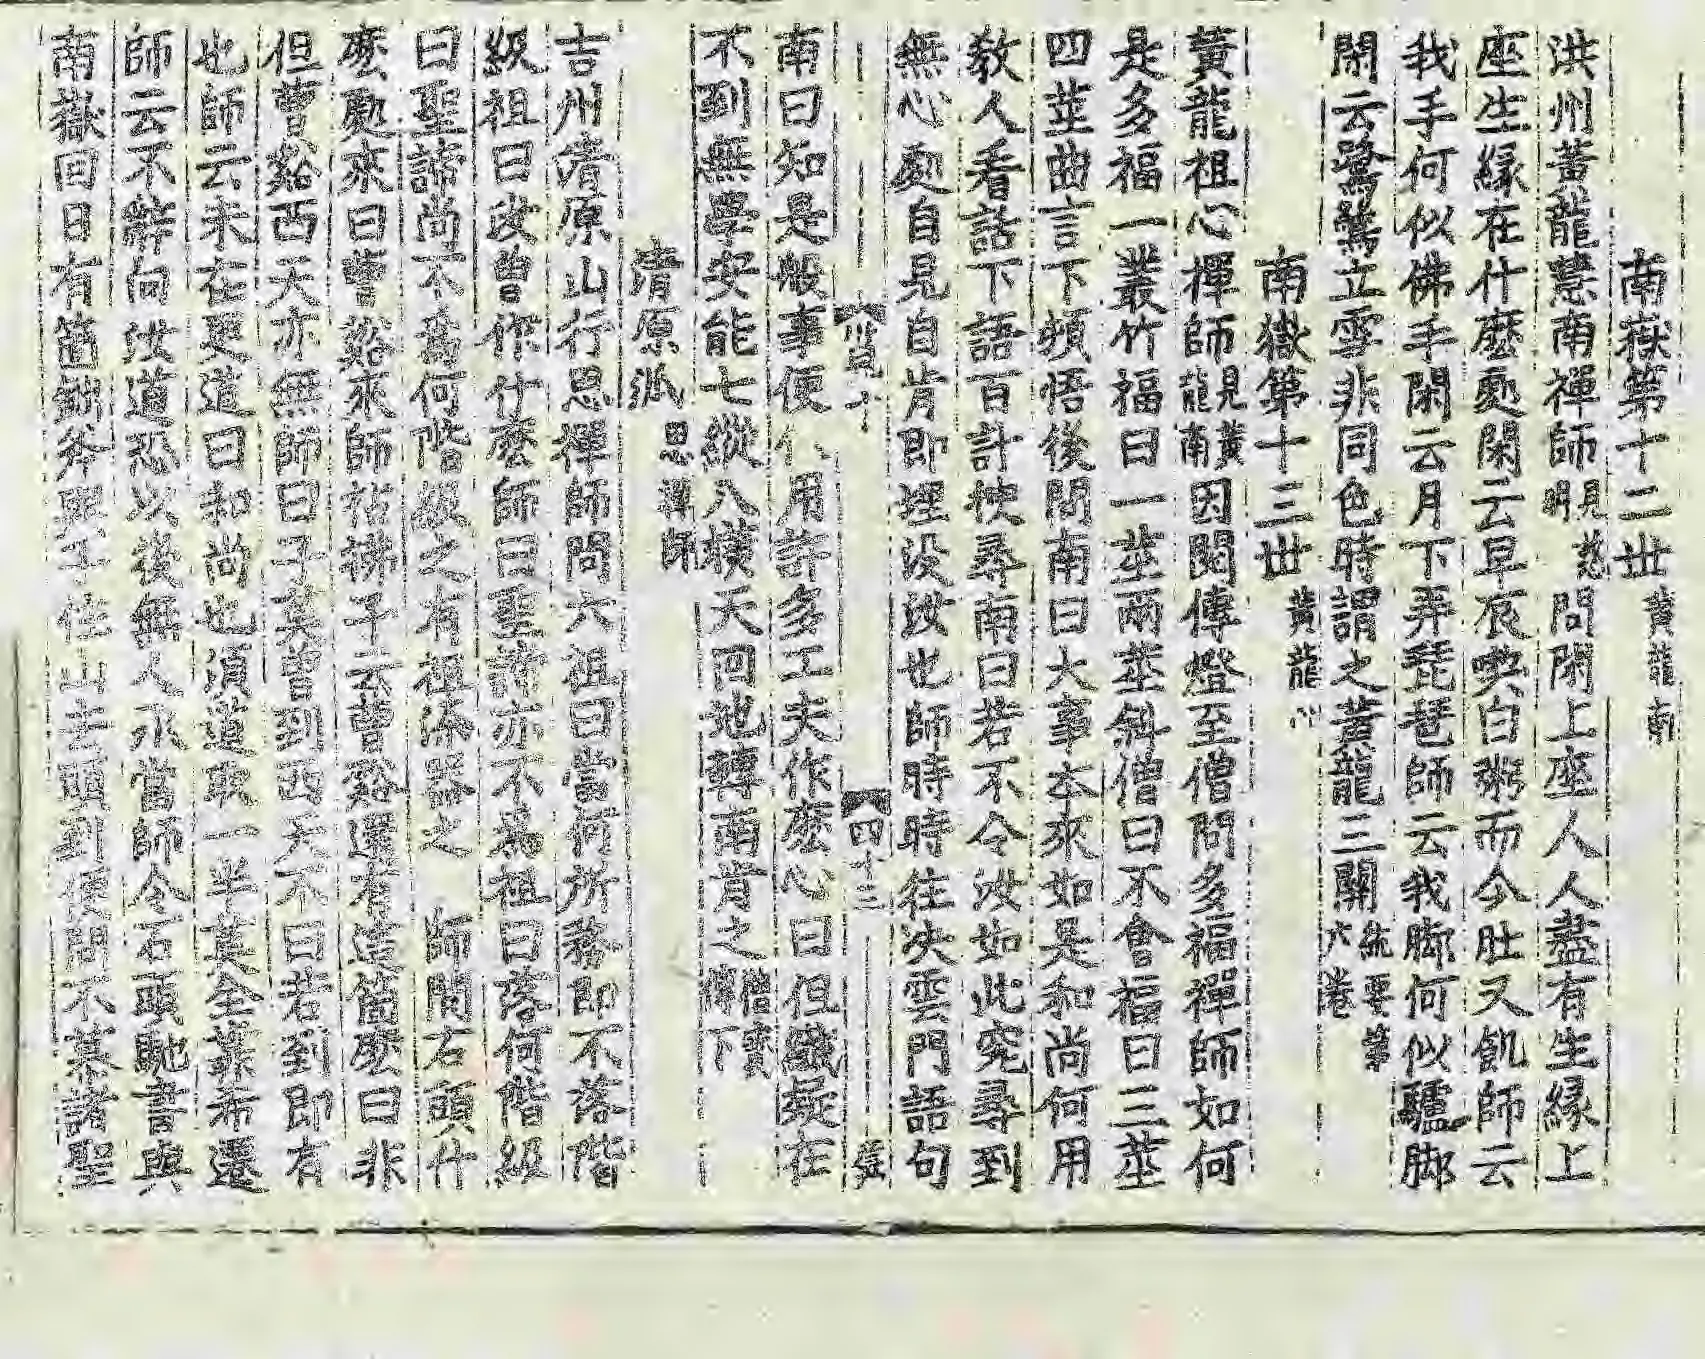 南嶽第十二世黃龍南
洪州黃龍慧南禪師明慈問閑上座人人盡有生緣上
座生緣在什麼處閑云早辰喫白粥而今肚又飢師云
我手何似佛手閑云月下弄琵琶師云我脚何似驢脚
閑云鷺鷥立雪非同色時謂之黃龍三關統要第六卷
南嶽第十三世黃龍心
黃龍祖心禪師見黃龍南因閱傳燈至僧問多福禪師如何
是多福一叢竹福曰一莖兩莖斜僧曰不會福曰三莖
四莖曲言下頓悟後問南曰大事本來如是和尚何用
教人看話下語百計搜尋南曰若不令汝如此究尋到
無心處自見自肯即埋沒汝也師時時往決雲門語句
四十三
南曰知是般事便休用許多工夫作麼心曰但纖疑在
不到無學安能七縱八橫天回地轉南肯之僧寶傳下
清原派思禪師
吉州清原山行思禪師問六祖曰當何所務即不落階
級祖曰汝曾作什麼師曰聖諦亦不為祖曰落何階級
曰聖諦尚不為何階級之有祖深器之 師問石頭什
麼處來曰曹谿來師拈拂子云曹谿還有這箇麼曰非
但曹谿西天亦無師曰子莫曾到西天不曰若到即有
也師云未在更道曰和尚也須道取一半莫全靠希遷
師云不辭向汝道恐以後無人承當師令石頭馳書與
南嶽曰日有箇鈯斧與子住山去頭到便問不慕諸聖